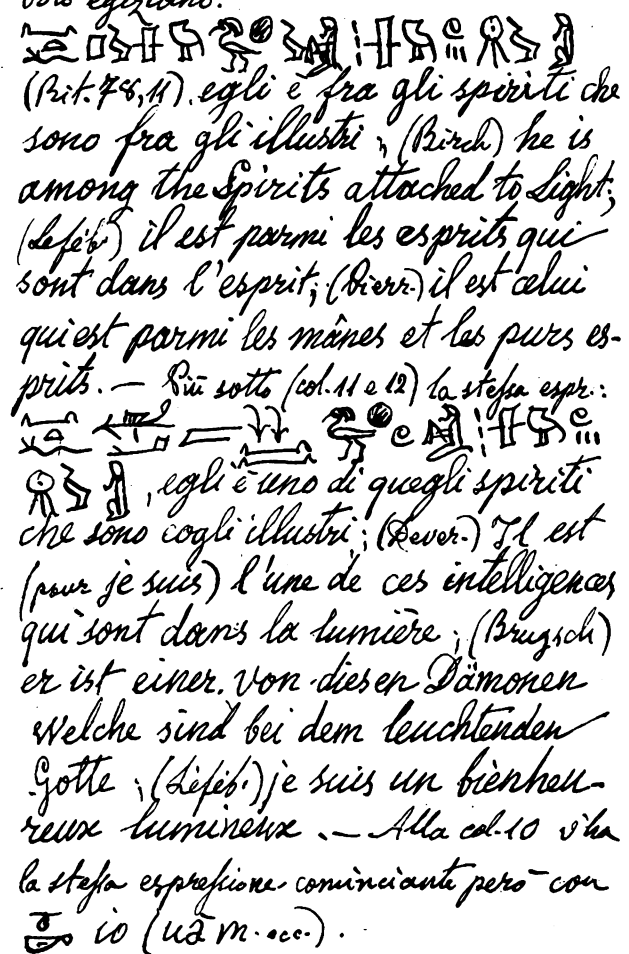 vero egiziano.
(Rit. 78, 11) egli è fra gli spiriti che
sono fra gli illustri; (Birch) he is
among the Spirits attached to Light;
(Leféb.) il est parmi les esprits qui
sont dans l'esprit; (Pierr.) il est celui
qui est parmi les mânes et les purs es-
prits. — Più sotto (col. 11 e 12) la stessa espr.:
, egli è uno di quegli spiriti
che sono cogli illustri; (Dever.) Il est
(pour je suis) l'une de ces intelligences
qui sont dans la lumière; (Brugsch)
er ist einer von diesen Dämonen
welche sind bei dem leuchtenden
Gotte; (Léféb.) je suis un bienheu-
reux lumineux. — Alla col. 10 v'ha
la stessa espressione cominciante però con
io (uā m. ecc.).